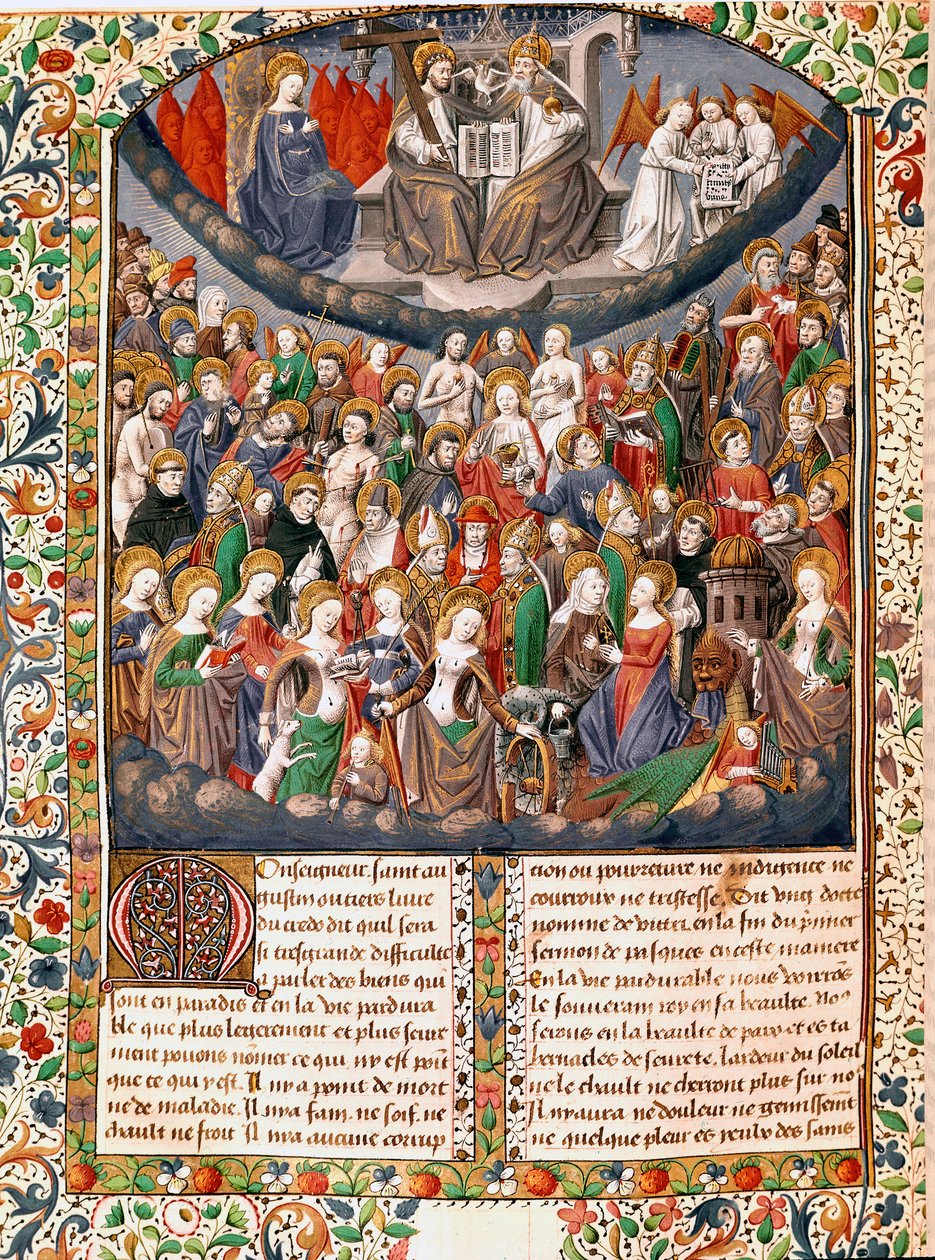 Onseigneur saint au
gustin ou tiers livre
du credo dit quil sera
si tresgrande difficulte
a parler des biens qui
sont en paradis et en la vie pardura
ble que plus legerement et plus seure
ment povons nōmer ce qui ny est poīt
que ce qui y est. Il ny a point de mort
ne de maladie. Il ny a fam. ne soif. ne
chault ne froit Il ny a aucune corrup
cion ou pourreture ne indigence ne
courroux ne tristesse. Dit ung docte
nomme de vitri en la fin du p̄mier
sermon de pasques en ceste maniere
En la vie pardurable nous verrōs
le souverain roy en sa beaulte. No9
serons en la beaulte de paix et es ta
bernacles de seurete. Lardeur du soleil
ne le chault ne cherront plus sur no9
Il ny aura ne douleur ne gemissemēt
ne quelque pleur es yeulx des sains